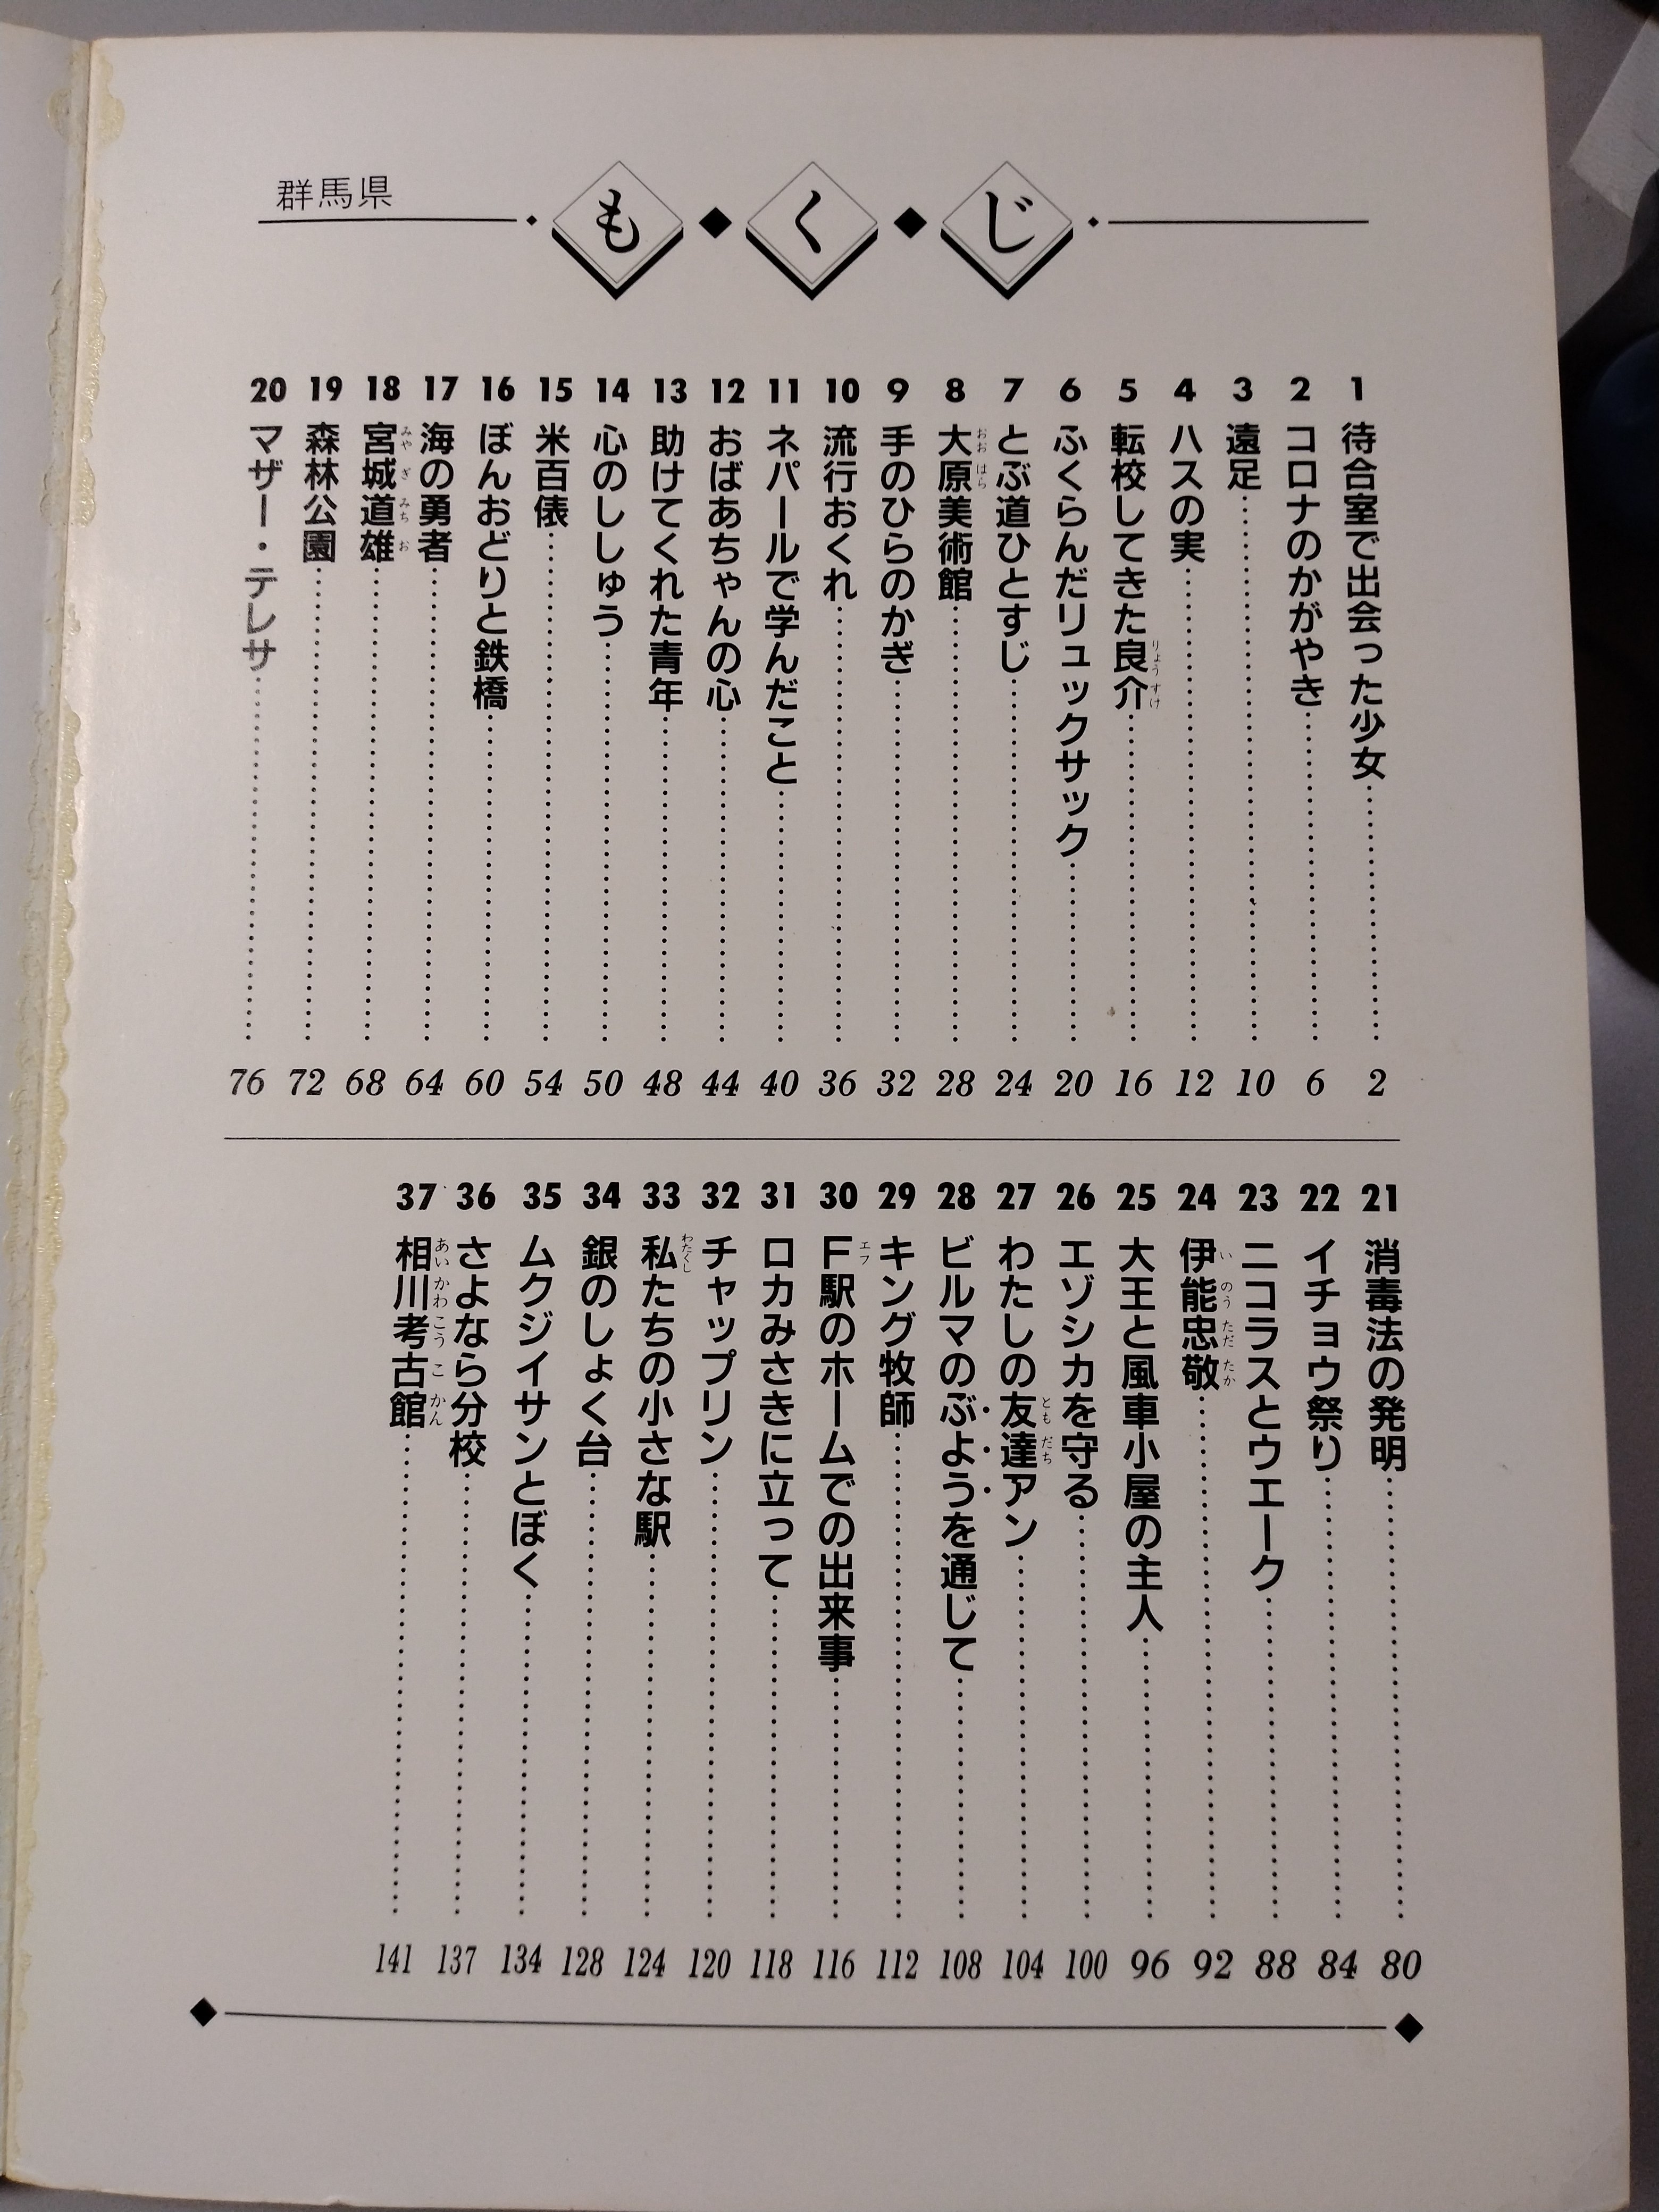 群馬県
もくじ
1 待合室で出会った少女 2
2 コロナのかがやき 6
3 遠足 10
4 ハスの実 12
5 転校してきた良介 16
りょうすけ
6 ふくらんだリュックサック 20
7 とぶ道ひとすじ 24
8 大原美術館 28
おおはら
9 手のひらのかぎ 32
10 流行おくれ 36
11 ネパールで学んだこと 40
12 おばあちゃんの心 44
13 助けてくれた青年 48
14 心のししゅう 50
15 米百俵 54
16 ぼんおどりと鉄橋 60
17 海の勇者 64
18 宮城道雄 68
みやぎみちお
19 森林公園 72
20 マザー・テレサ 76
21 消毒法の発明 80
22 イチョウ祭り 84
23 ニコラスとウエーク 88
24 伊能忠敬 92
いのうただたか
25 大王と風車小屋の主人 96
26 エゾシカを守る 100
27 わたしの友達アン 104
ともだち
28 ビルマのぶようを通じて 108
29 キング牧師 112
30 F駅のホームでの出来事 116
エフ
31 ロカみさきに立って 118
32 チャップリン 120
33 私たちの小さな駅 124
わたくし
34 銀のしょく台 128
35 ムクジイサンとぼく 134
36 さよなら分校 137
37 相川考古館 141
あいかわこうこかん